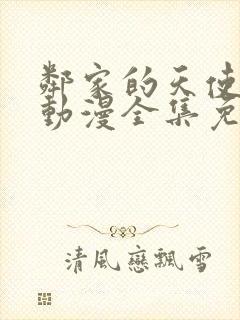 鄰家的天使
動漫全集免
清風戀飄雪